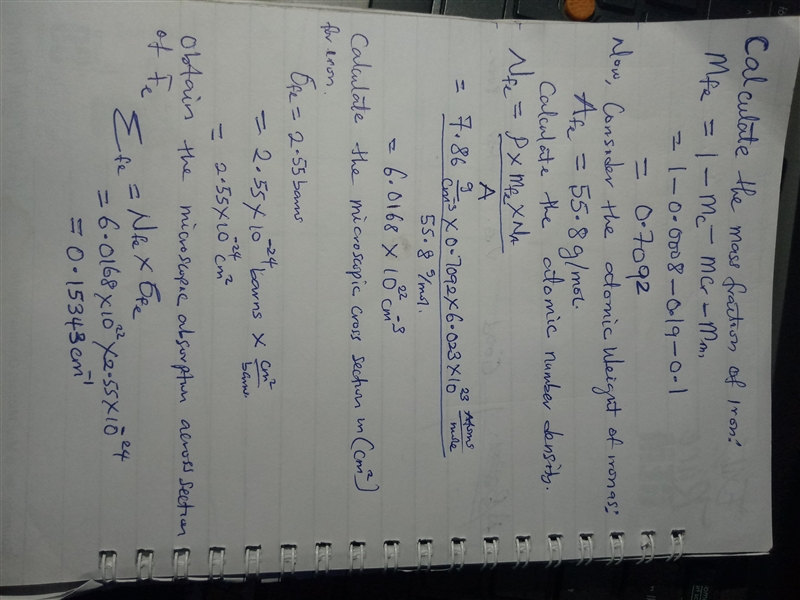 Calculate the mass fraction of iron:
Mfe = 1 - Mc - Mcr - Mm
= 1 - 0.0008 - 0.19 - 0.1
= 0.7092
Now, Consider the atomic weight of iron as:
Afe = 55.8 g/mol.
Calculate the atomic number density.
Nfe = ρ × mfe × NA
A
= 7.86 g/cm-3 × 0.7092 × 6.023 × 10^23 Atoms/mole
55.8 g/mol.
= 6.0168 × 10^22 cm^-3
Calculate the microscopic cross section in (cm²)
for iron.
σfe = 2.55 barns
= 2.55 × 10^-24 barns × cm²/barns
= 2.55 × 10^-24 cm²
Obtain the microscopic absorption across section
of Fe
Σfe = Nfe × σfe
= 6.0168 × 10^22 × 2.55 × 10^-24
= 0.15343 cm^-1